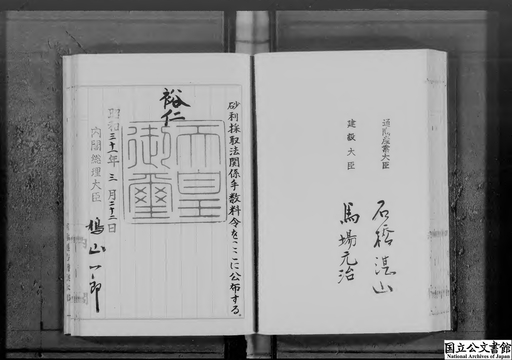 砂利採取法関係手数料令をここに公布する。
裕仁
天皇
御璽
昭和三十一年三月二十二日
内閣総理大臣 鳩山一郎
通商産業大臣 石橋湛山
建設大臣 馬場元治
国立公文書館
National Archives of Japan